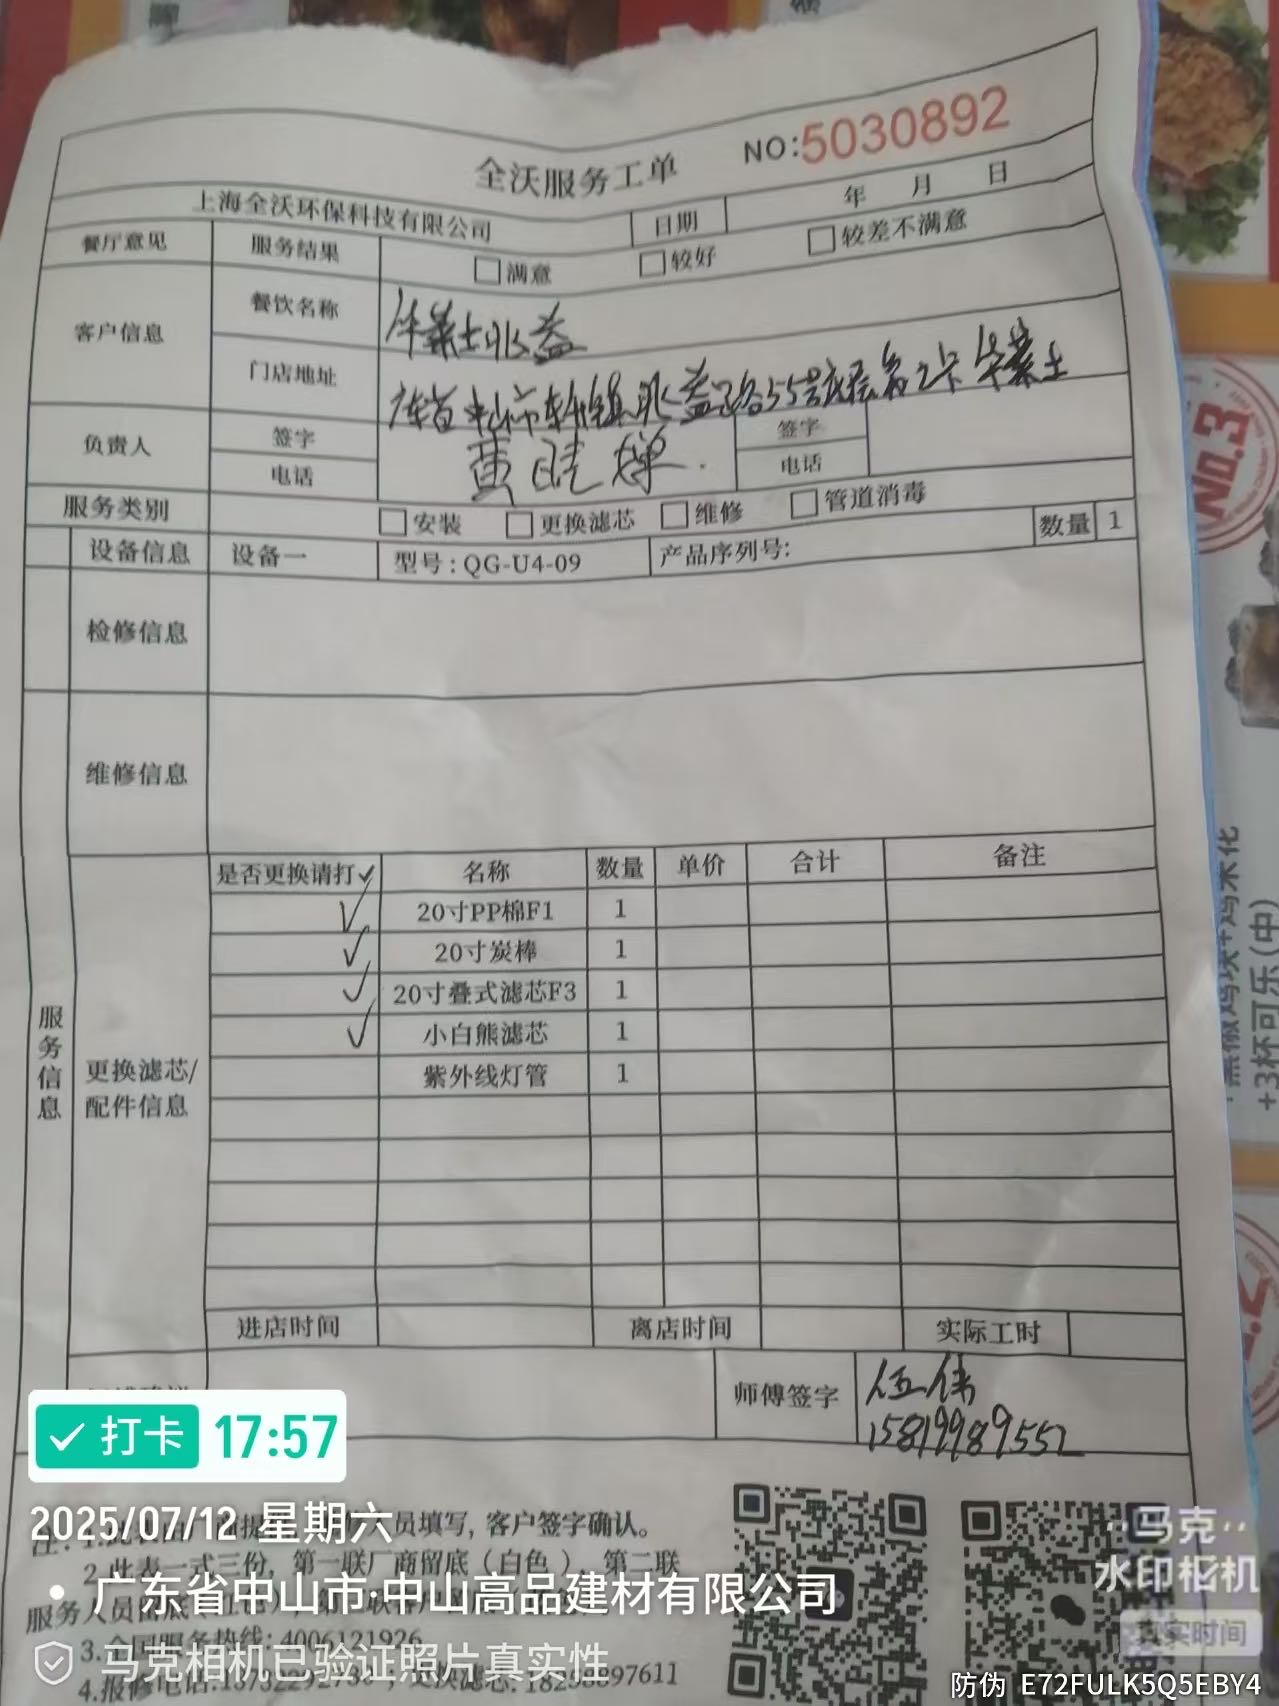 全沃服务工单
NO:5030892
上海全沃环保科技有限公司 日期 年 月 日
餐厅意见 服务结果 满意 较好 较差不满意
客户信息 餐饮名称 华莱士永益
门店地址 广东省中山市东升镇永益路55号底层第2卡华莱士
负责人 签字 黄晓 签字
电话 电话
服务类别 安装 更换滤芯 维修 管道消毒
设备信息 设备一 型号:QG-U4-09 产品序列号: 数量 1
检修信息
维修信息
服务信息
更换滤芯/
配件信息
是否更换请打✓ 名称 数量 单价 合计 备注
✓ 20寸PP棉F1 1
✓ 20寸炭棒 1
✓ 20寸叠式滤芯F3 1
✓ 小白熊滤芯 1
紫外线灯管 1
进店时间 离店时间 实际工时
师傅签字 伍伟
15819989552
打卡 17:57
2025/07/12 星期六
人员填写,客户签字确认。
2.此表一式三份,第一联厂商留底(白色),第二联
广东省中山市·中山高品建材有限公司
服务人员
3.全国服务热线:4006121926
马克相机已验证照片真实性
4.报修电话:
马克
水印相机
真实时间
防伪 E72FULK5Q5EBY4
No.3
+3杯可乐(中)